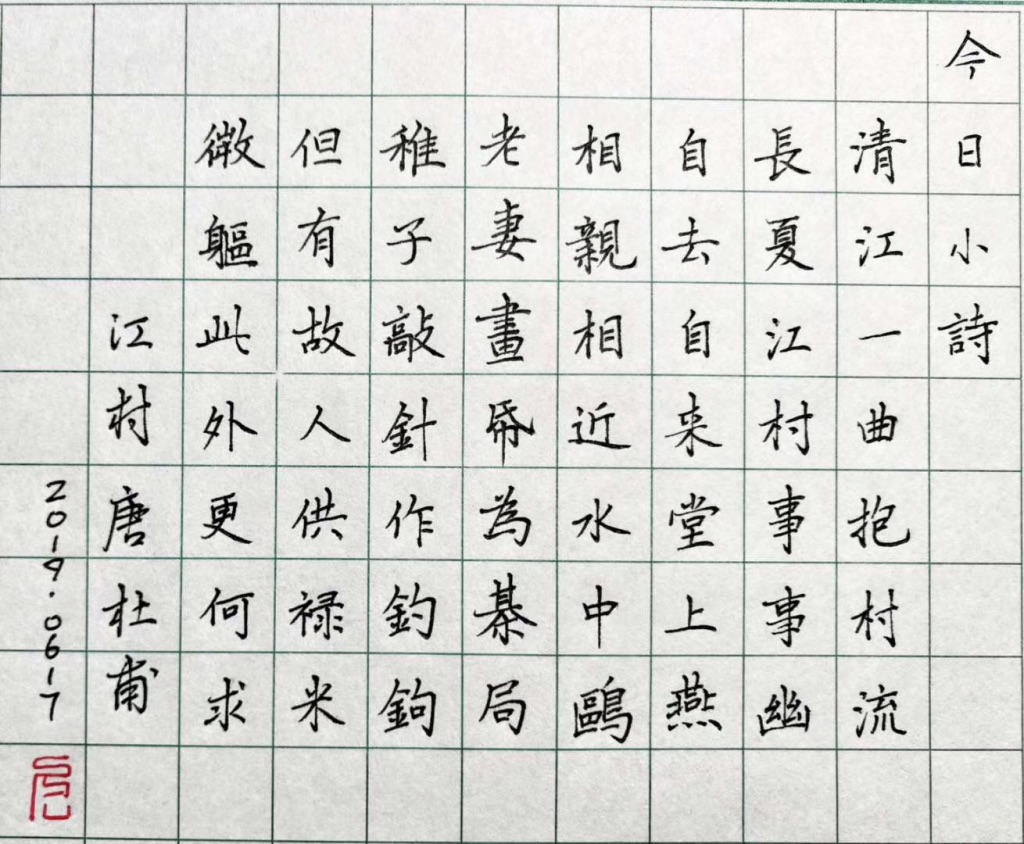 今日小詩
清江一曲抱村流
長夏江村事事幽
自去自来堂上燕
相親相近水中鷗
老妻畫帋為棊局
稚子敲針作釣鉤
但有故人供禄米
微軀此外更何求
江村 唐 杜甫
2019.0617